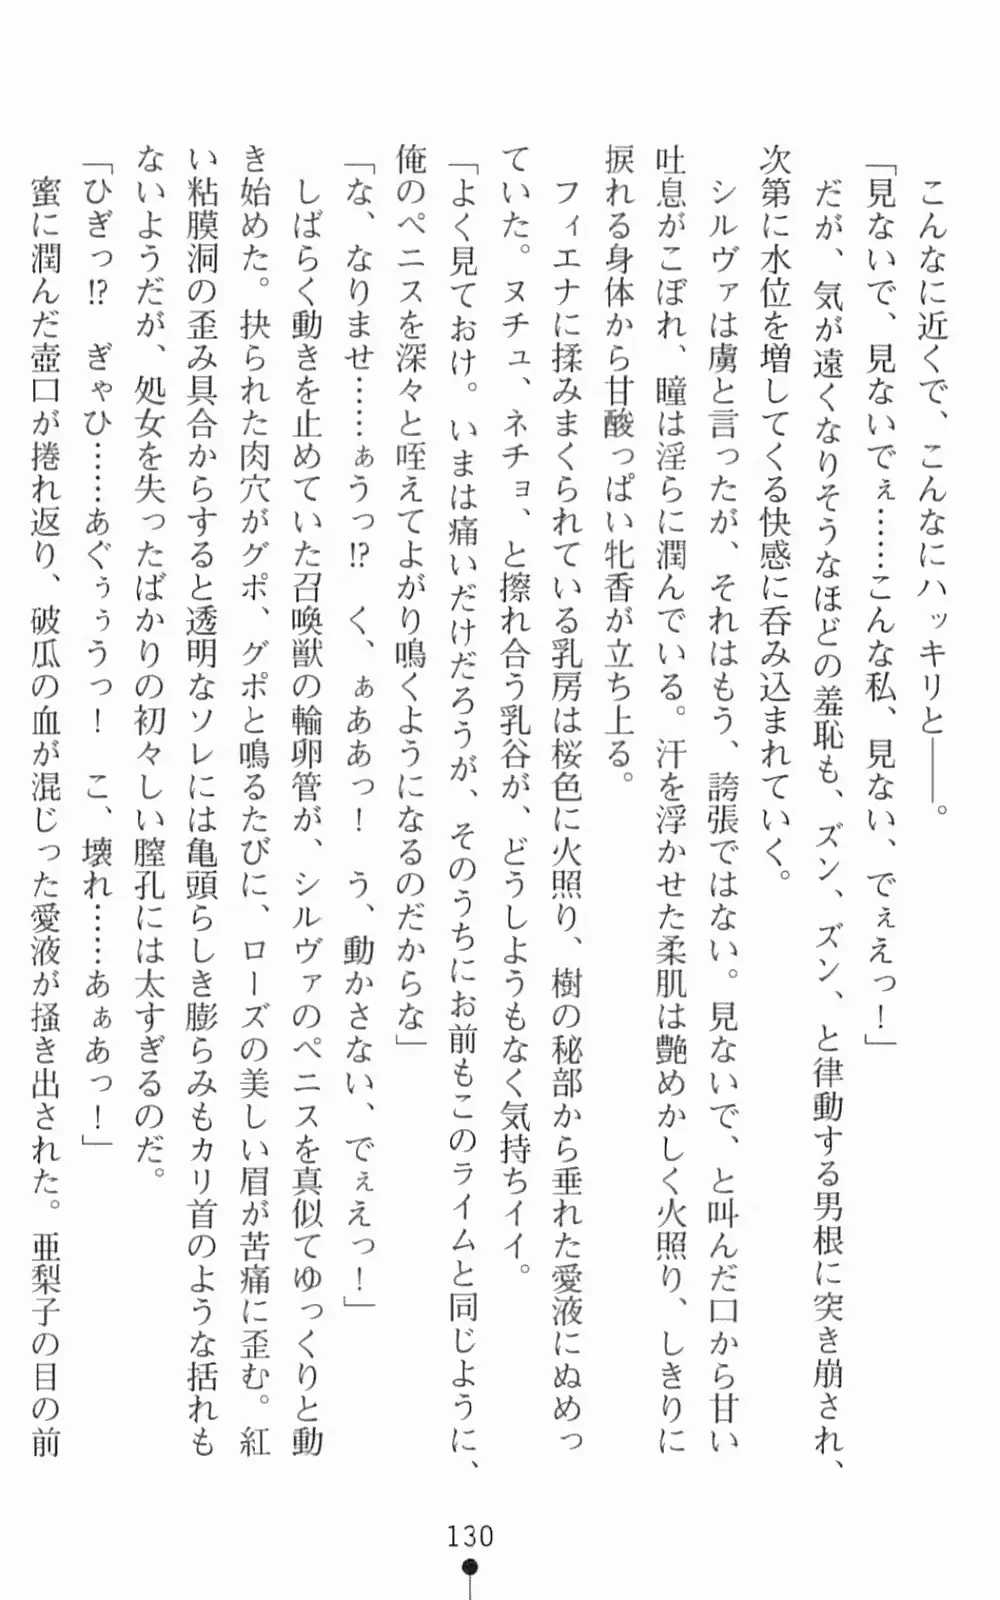 こんなに近くで、こんなにハッキリと――。
「見ないで、見ないでぇ……こんな私、見ない、でぇえっ！」
だが、気が遠くなりそうなほどの羞恥も、ズン、ズン、と律動する男根に突き崩され、
次第に水位を増してくる快感に呑み込まれていく。
シルヴァは虜と言ったが、それはもう、誇張ではない。見ないで、と叫んだ口から甘い
吐息がこぼれ、瞳は淫らに潤んでいる。汗を浮かせた柔肌は艶めかしく火照り、しきりに
捩れる身体から甘酸っぱい牝香が立ち上る。
フィエナに揉みまくられている乳房は桜色に火照り、樹の秘部から垂れた愛液にぬめっ
ていた。ヌチュ、ネチョ、と擦れ合う乳谷が、どうしようもなく気持ちイイ。
「よく見ておけ。いまは痛いだけだろうが、そのうちにお前もこのライムと同じように、
俺のペニスを深々と咥えてよがり鳴くようになるのだからな」
「な、なりませ……ぁうっ!?　く、ぁああっ！　う、動かさない、でぇえっ！」
しばらく動きを止めていた召喚獣の輸卵管が、シルヴァのペニスを真似てゆっくりと動
き始めた。抉られた肉穴がグポ、グポと鳴るたびに、ローズの美しい眉が苦痛に歪む。紅
い粘膜洞の歪み具合からすると透明なソレには亀頭らしき膨らみもカリ首のような括れも
ないようだが、処女を失ったばかりの初々しい膣孔には太すぎるのだ。
「ひぎっ!?　ぎゃひ……あぐぅぅうっ！　こ、壊れ……あぁあっ！」
蜜に潤んだ壺口が捲れ返り、破瓜の血が混じった愛液が掻き出された。亜梨子の目の前
130